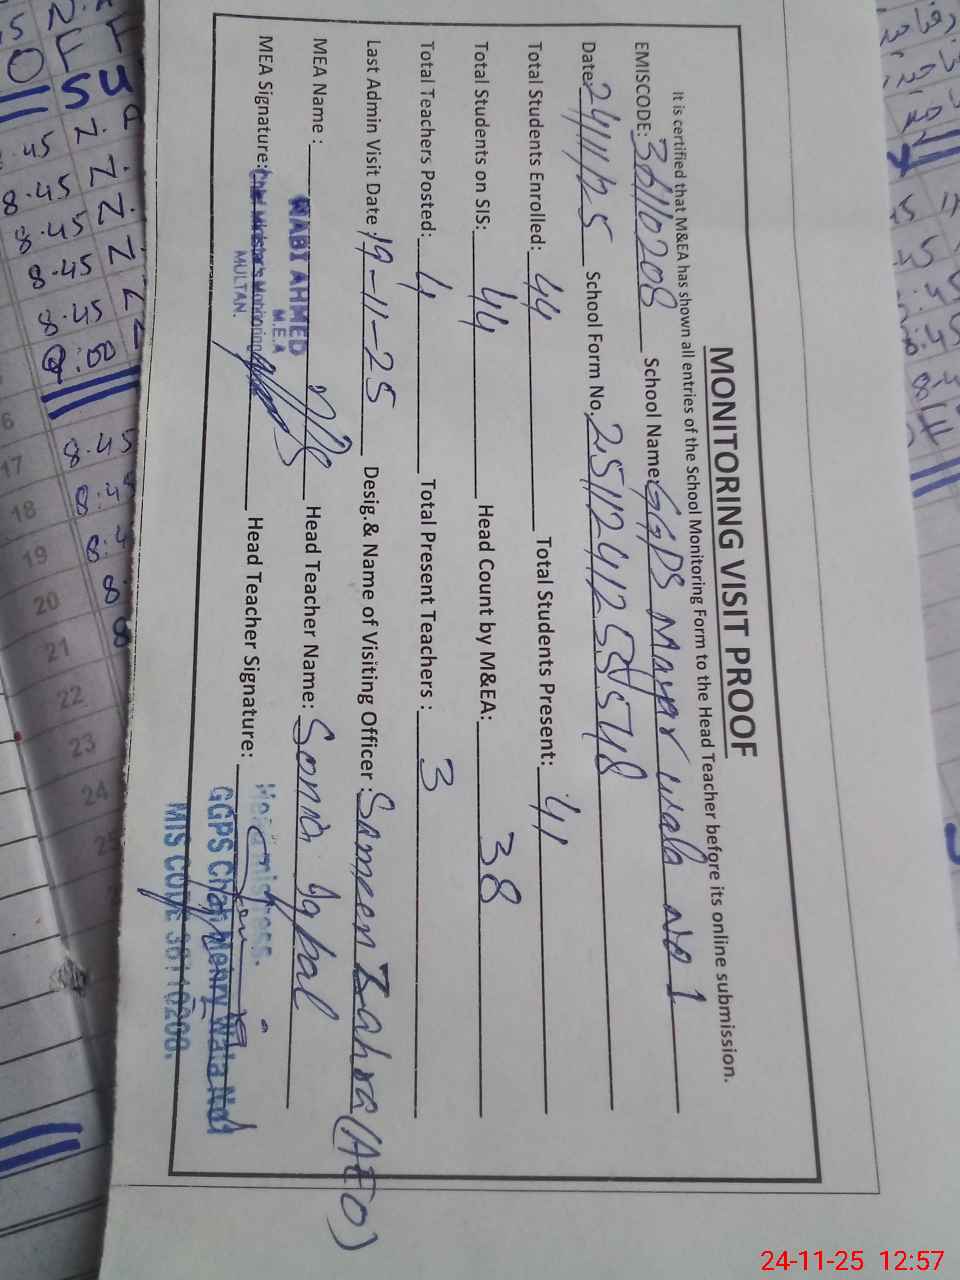 MONITORING VISIT PROOF
It is certified that M&EA has shown all entries of the School Monitoring Form to the Head Teacher before its online submission.
EMISCODE: 36110208 School Name: GGPS wala No 1
Date: 24/11/25 School Form No.
Total Students Enrolled: 44 Total Students Present: 41
Total Students on SIS: 44 Head Count by M&EA: 38
Total Teachers Posted: 4 Total Present Teachers : 3
Last Admin Visit Date: 19-11-25 Desig.& Name of Visiting Officer : Sameen Zahra (AEO)
MEA Name : NABI AHMED Head Teacher Name: Sonia Iqbal
M.E.A
MEA Signature: Chief Minister's Monitoring Head Teacher Signature:
MULTAN.
Headmistress.
GGPS Chah Wala No1
MIS CODE 36110208.
45
8.45
8.45
8.45
8.45
8.45
17
18
19
20
21
22
23
24
24-11-25 12:57